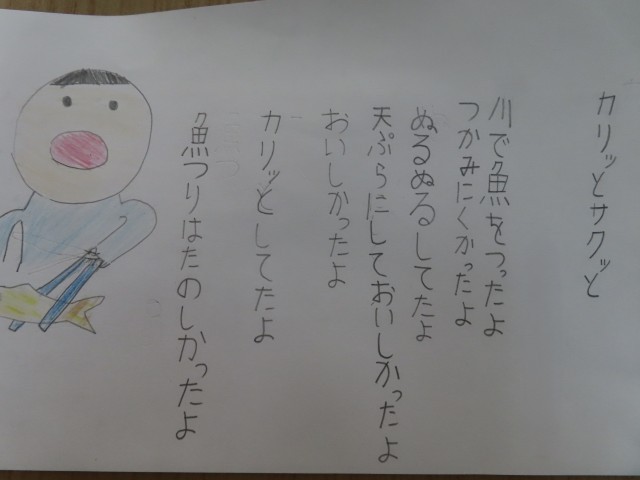 カリッとサクッと
川で魚をつったよ
つかみにくかったよ
ぬるぬるしてたよ
天ぷらにしておいしかったよ
おいしかったよ
カリッとしてたよ
魚つりはたのしかったよ